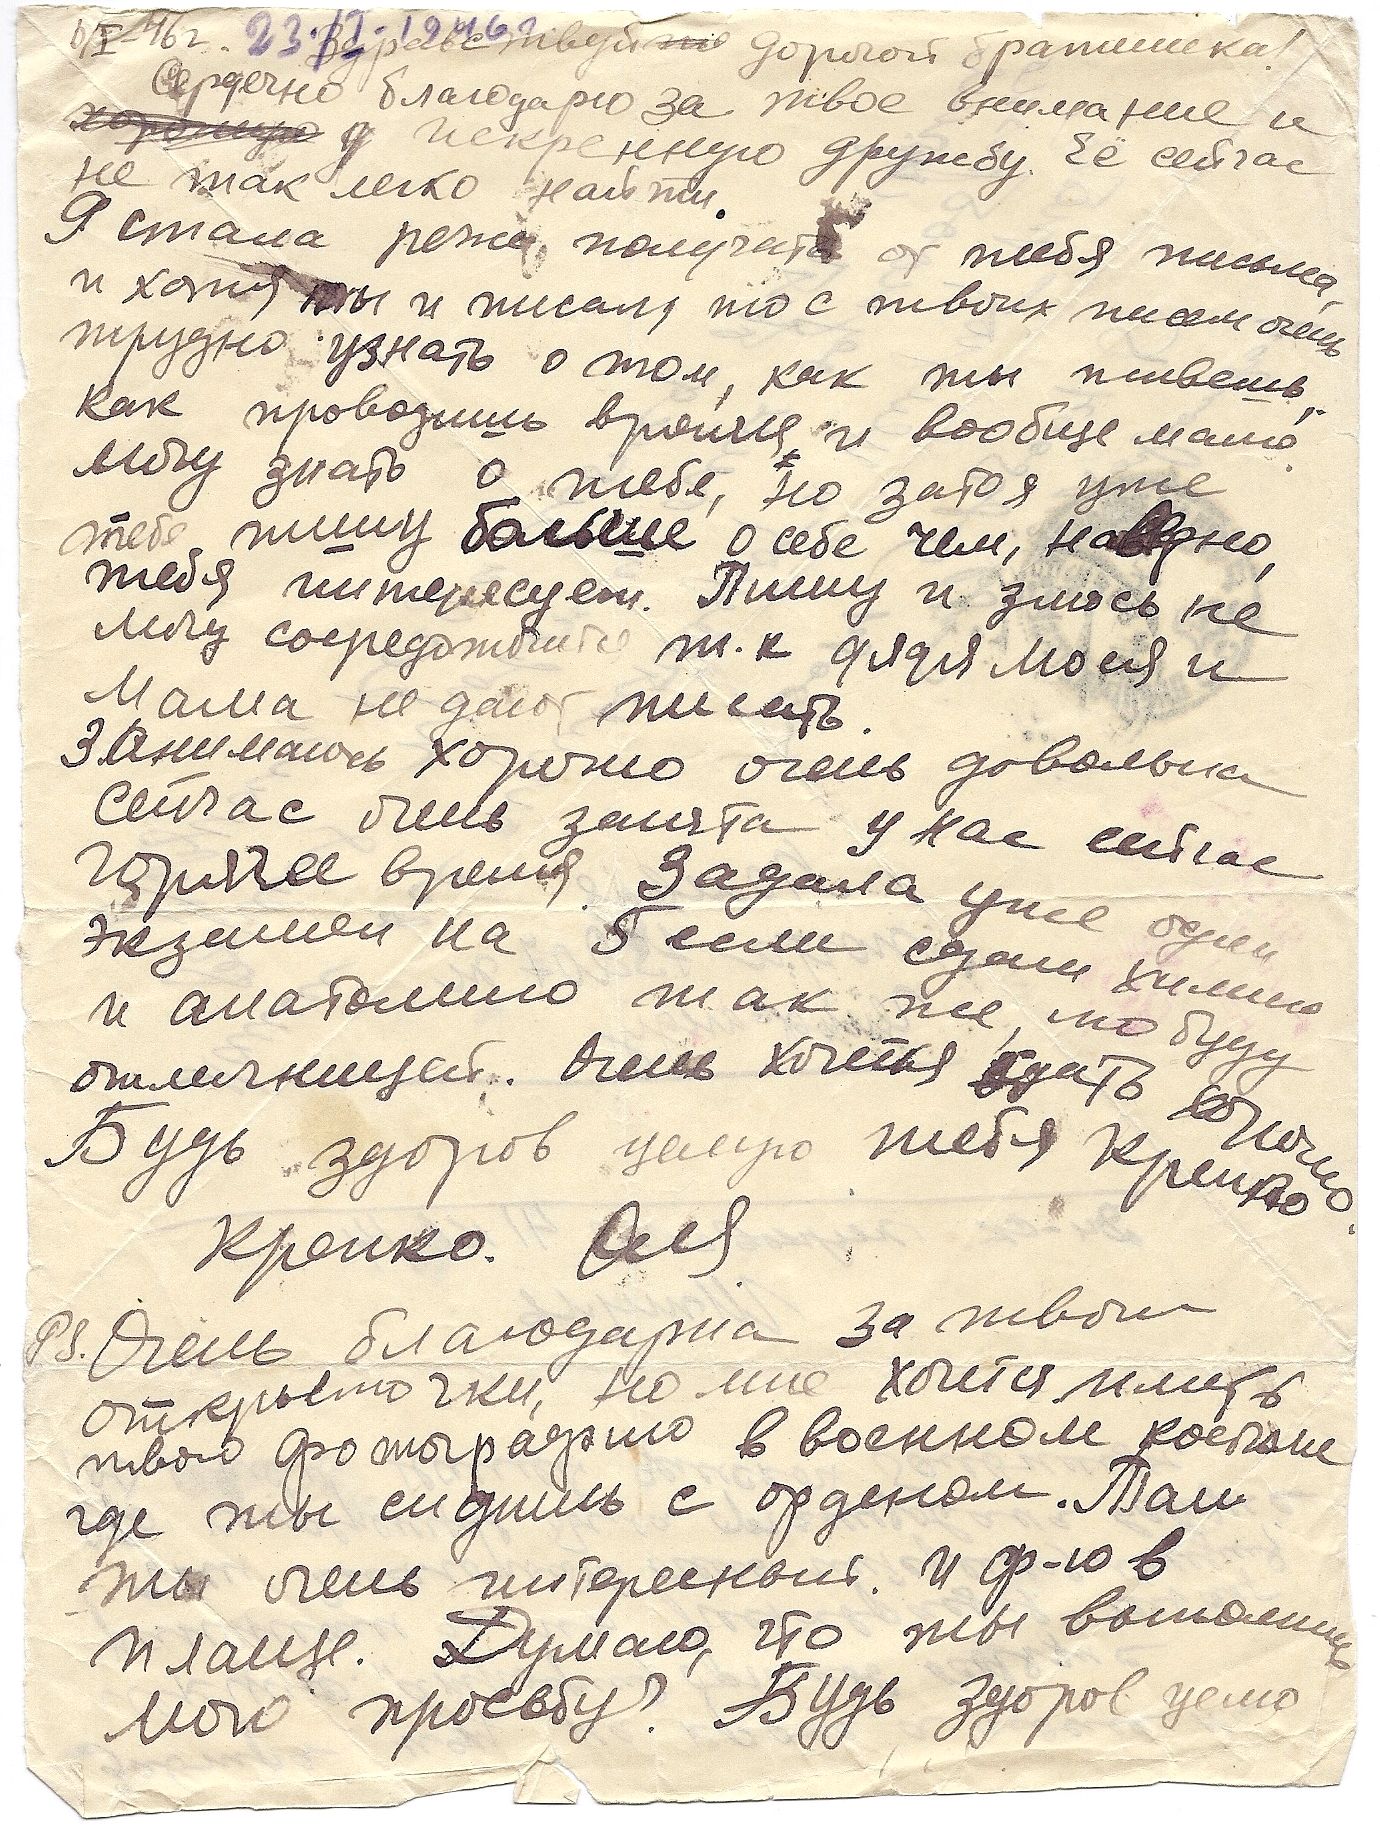 46г. 23/I-1946г
Здравствуй дорогой братишка!
Сердечно благодарю за твое внимание и
хорошую и искреннную дружбу. Её сейчас
не так легко найти.
Я стала реже получать от тебя письма,
и хотя ты и писал, то с твоих писем очень
трудно узнать о том, как ты живешь,
как проводишь время, и вообще мало
могу знать о тебе, но затоя уже
тебе пишу больше о себе чем, наверно,
тебя интересует. Пишу и злюсь не
могу сосредоточится т.к дядя моея и
Мама не дают писать.
Занимаюсь хорошо очень довольна
Сейчас очень занята у нас сейчас
горячее время. Здала уже один
экзамен на 5 если сдам химию
и анатомию так же, то буду
отличницей. Очень хочется сдать
Будь здоров целую тебя крепко
Крепко. Оля
PS. Очень благодарна за твои
открыточки, но мне хочется иметь
твою фотографию в военном костюме
где ты сидишь с орденом. Там
ты очень интересный. и ф-ю в
плаще. Думаю, что ты выполнишь
мою просьбу? Будь здоров целую